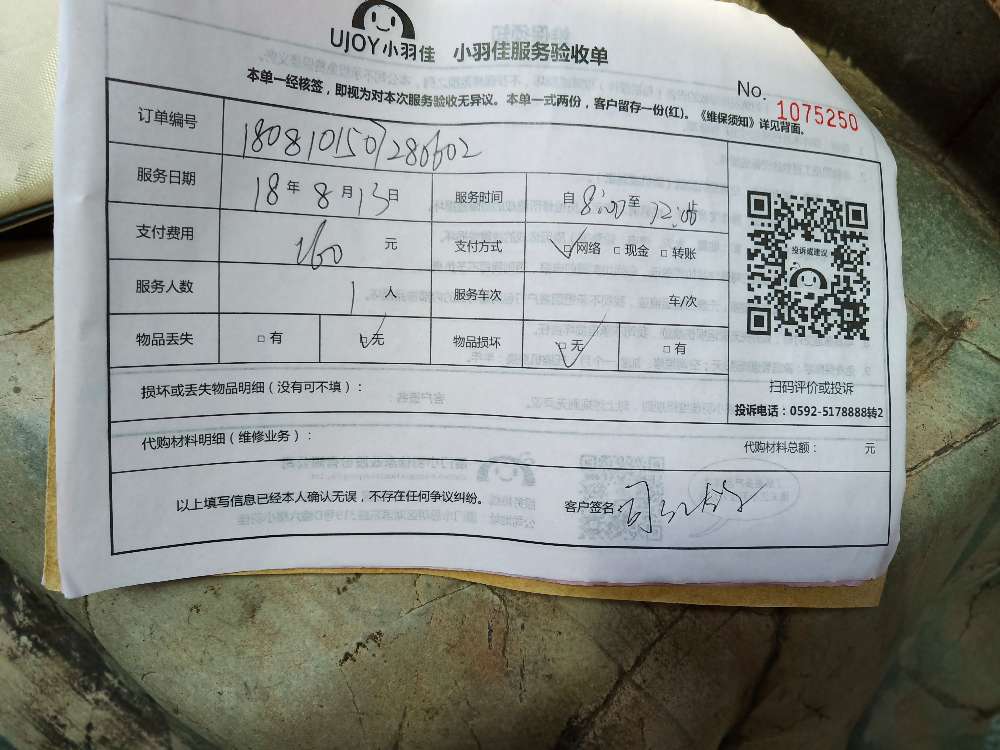 UJOY小羽佳 小羽佳服务验收单
本单一经核签，即视为对本次服务验收无异议。本单一式两份，客户留存一份(红)。《维保须知》详见背面。
No. 1075250
订单编号 1808101507286602
服务日期 18年8月13日 服务时间 自8:00至12:00
支付费用 260元 支付方式 □网络 □现金 □转账
服务人数 1人 服务车次 车/次
物品丢失 □有 □无 物品损坏 □无 □有
投诉或建议
扫码评价或投诉
投诉电话：0592-5178888转2
损坏或丢失物品明细（没有可不填）：
代购材料明细（维修业务）： 代购材料总额： 元
以上填写信息已经本人确认无误，不存在任何争议纠纷。 客户签名：